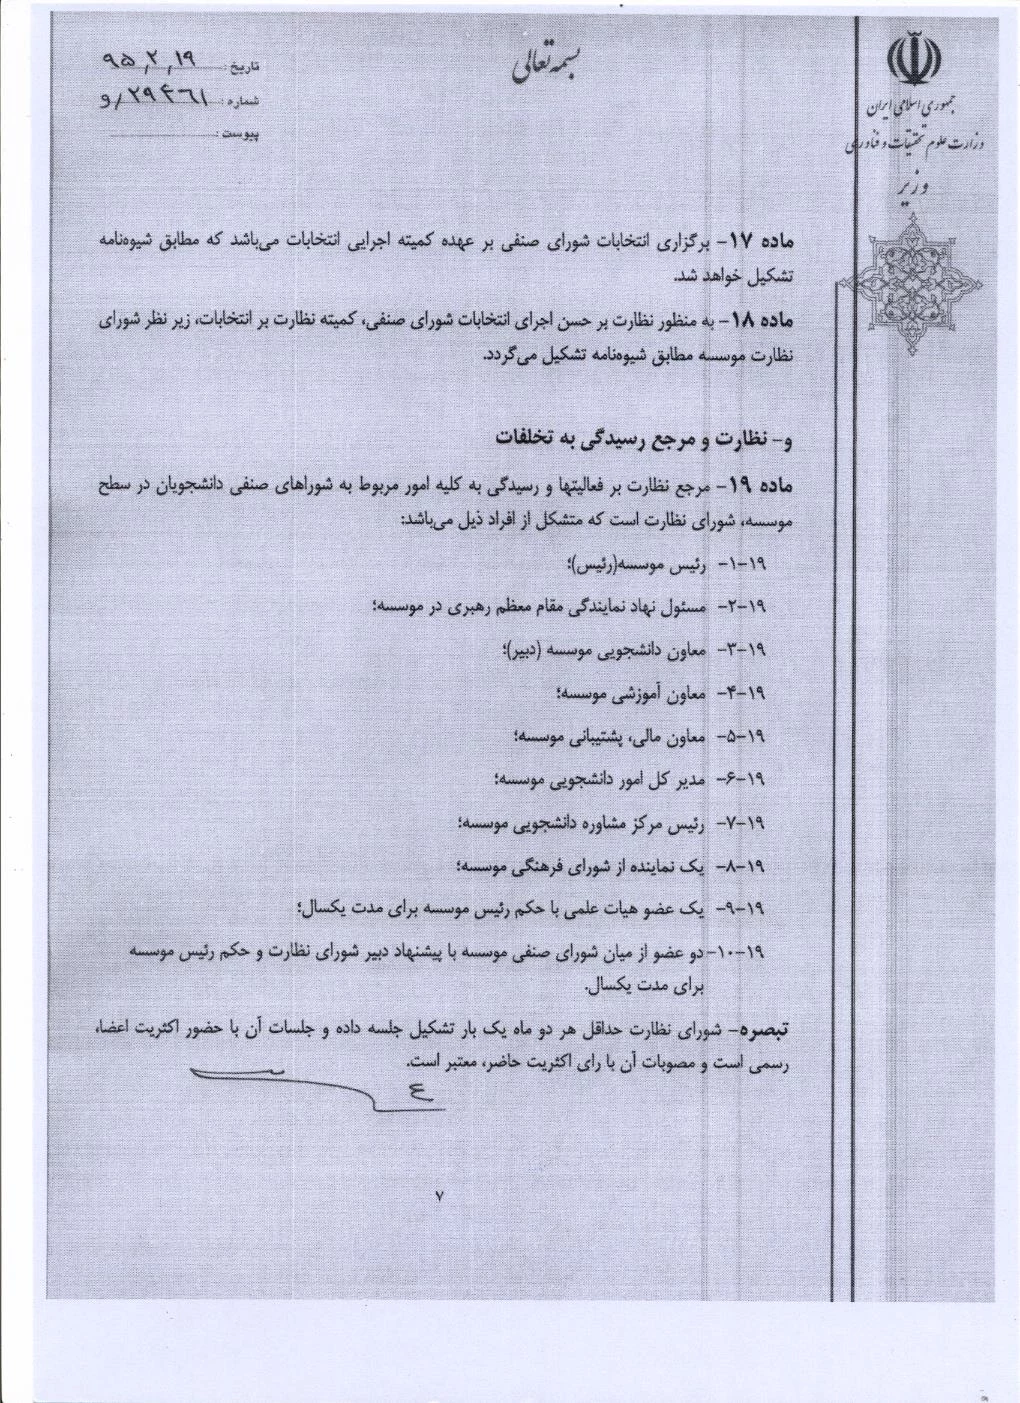 بسمه تعالی
جمهوری اسلامی ایران
وزارت علوم تحقیقات و فناوری
وزیر
تاریخ : ۹۵٫۲٫۱۹
شماره : ۲۹۴۶۱/و
پیوست :
ماده ۱۷- برگزاری انتخابات شورای صنفی بر عهده کمیته اجرایی انتخابات می‌باشد که مطابق شیوه‌نامه
تشکیل خواهد شد.
ماده ۱۸- به منظور نظارت بر حسن اجرای انتخابات شورای صنفی، کمیته نظارت بر انتخابات، زیر نظر شورای
نظارت موسسه مطابق شیوه‌نامه تشکیل می‌گردد.
و- نظارت و مرجع رسیدگی به تخلفات
ماده ۱۹- مرجع نظارت بر فعالیتها و رسیدگی به کلیه امور مربوط به شوراهای صنفی دانشجویان در سطح
موسسه، شورای نظارت است که متشکل از افراد ذیل می‌باشد:
۱۹-۱- رئیس موسسه(رئیس)؛
۱۹-۲- مسئول نهاد نمایندگی مقام معظم رهبری در موسسه؛
۱۹-۳- معاون دانشجویی موسسه (دبیر)؛
۱۹-۴- معاون آموزشی موسسه؛
۱۹-۵- معاون مالی، پشتیبانی موسسه؛
۱۹-۶- مدیر کل امور دانشجویی موسسه؛
۱۹-۷- رئیس مرکز مشاوره دانشجویی موسسه؛
۱۹-۸- یک نماینده از شورای فرهنگی موسسه؛
۱۹-۹- یک عضو هیات علمی با حکم رئیس موسسه برای مدت یکسال؛
۱۹-۱۰- دو عضو از میان شورای صنفی موسسه با پیشنهاد دبیر شورای نظارت و حکم رئیس موسسه
برای مدت یکسال.
تبصره- شورای نظارت حداقل هر دو ماه یک بار تشکیل جلسه داده و جلسات آن با حضور اکثریت اعضا،
رسمی است و مصوبات آن با رای اکثریت حاضر، معتبر است.
۷